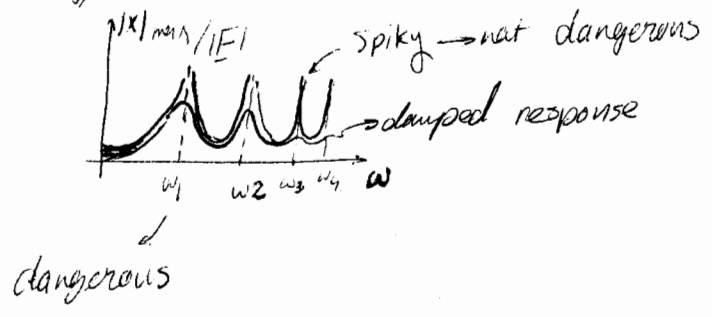 |X| max / |F|
spiky → not dangerous
→ damped response
ω1 ω2 ω3 ω4 ω
dangerous